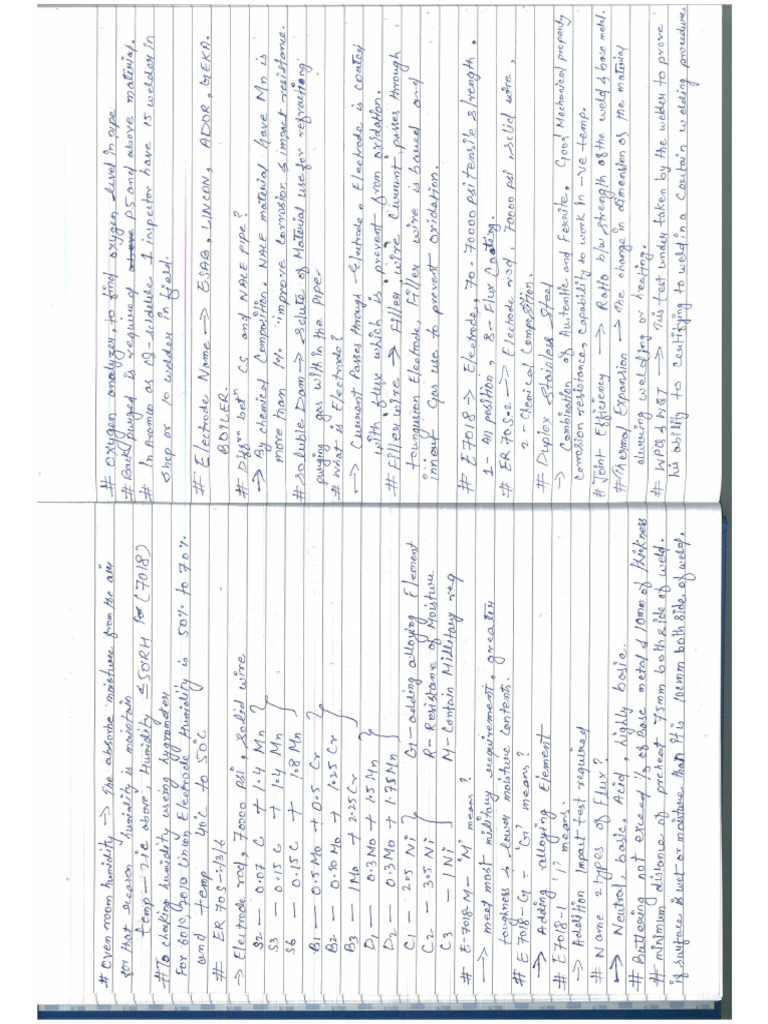 # Oven room humidity → The absorbe moisture from the air
for that reason humidity is maintain
temp — 21°C above, Humidity ≤ 50RH for (7018)
# To checking humidity using hygrometer
For 6010, 7010 Lincon Electrode Humidity is 50% to 70%
and temp 40°C to 50°C
# ER 70S-2/3/6
→ Electrode rod, 70000 psi, solid wire
S2 — 0.07 C + 1.4 Mn }
S3 — 0.15 C + 1.4 Mn }
S6 — 0.15 C + 1.8 Mn }
B1 — 0.5 Mo + 0.5 Cr }
B2 — 0.50 Mo + 1.25 Cr }
B3 — 1 Mo + 2.25 Cr }
D1 — 0.3 Mo + 1.5 Mn }
D2 — 0.3 Mo + 1.75 Mn }
C1 — 2.5 Ni } G - adding alloying Element
C2 — 3.5 Ni } R - Resistance of Moisture
C3 — 1 Ni } M - Contain Millitary req
# E-7018-M - 'M' means?
→ meet most military requirement, greater
toughness & lower moisture contents.
# E 7018-G = 'G' means?
→ Adding alloying Element
# E 7018-1 '1' means.
→ Addition Impact test required
# Name 2 types of Flux?
→ Neutral, basic. Acid, highly basic.
# Buttering not exceed ⅓ of base metal & 10mm of thickness
# minimum distance of preheat 75mm both side of weld.
if surface is wet or moisture than it is 100mm both side of weld.
# Oxygen analyzer, to find oxygen level in pipe
# Back purged is required above P5 and above material.
# In Aramco as QI-
1 inspector have 15 welder in
shop or 10 welder in field.
# Electrode Name → ESAB, LINCON, ADOR, GEKA.
BOILER.
# Diffⁿ bet" CS and NACE pipe?
→ By chemical Composition, NACE material have Mn is
more than 1% improve corrosion & impact resistance.
# Soluble Dam → Solute of Material use for refractiong
purging gas with in the pipe.
# what is Electrode?
→ Current Passes through Electrode. Electrode is coated
with flux which is prevent from oxidation.
# Filler wire → Filler wire Current passes through
tungusion Electrode Filler wire is bared and
innour Gas use to prevent oxidation.
# E 7018 → Electrode, 70-70000 psi tensile strength,
1 - All position, 8 - Flux Coating.
# ER 70S-2 → Electrode rod, 70000 psi, solid wire,
2 - chemical Composition.
# Duplex Stainless Steel
→ Combination of Autentic and Ferrite, Good Mechanical property
Corrosion resistance, Capability to work in -ve temp.
# Joint Efficiency → Ratio b/w strength of the weld & base metal.
# Thermal Expansion → The change in dimension of the material
durring welding or heating.
# WPQ & WQT → This test under taken by the welder to prove
his ability to Certifying to weld in a Certain welding procedure.